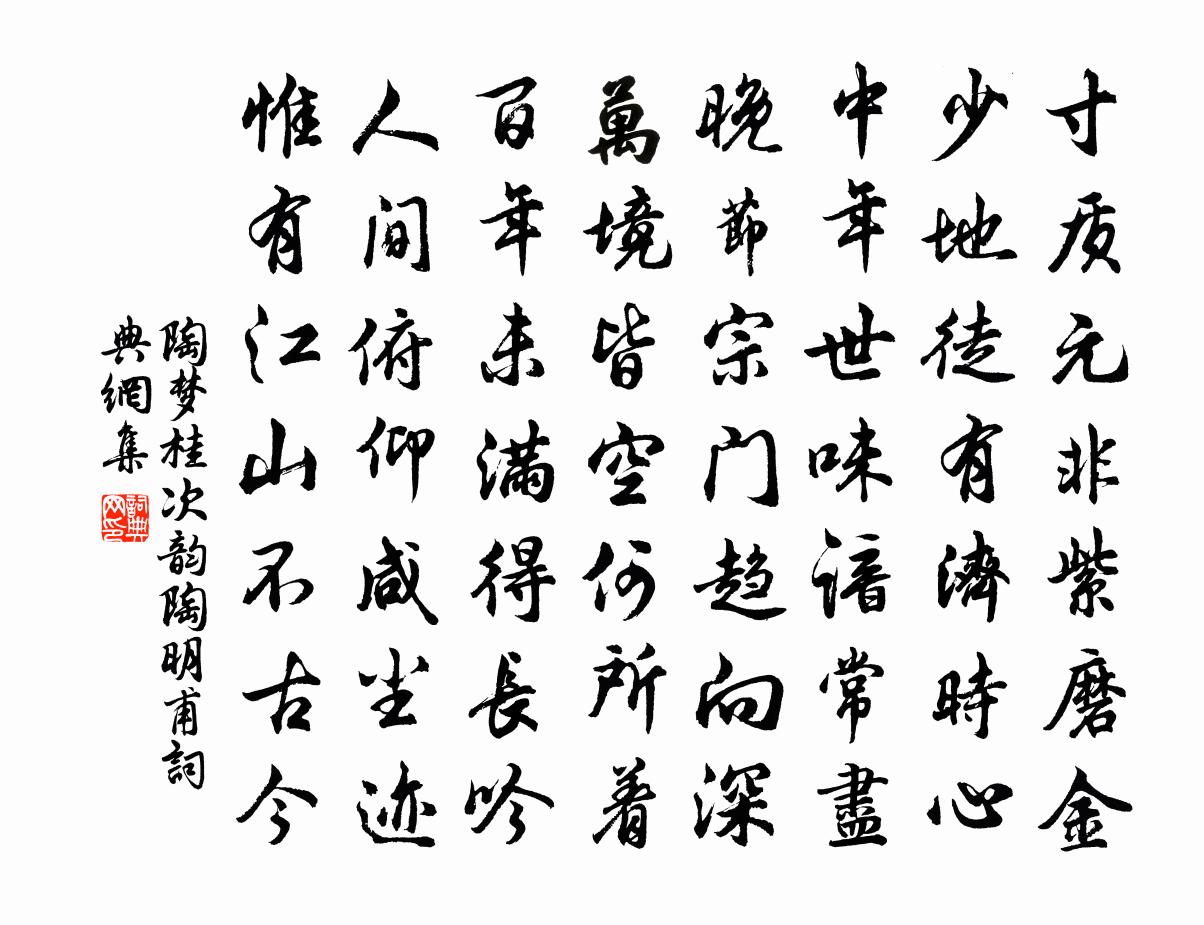 寸质元非紫磨金
少地徒有濟時心
中年世味谙常盡
晚節宗门趋向深
萬境皆空何所着
百年未满得長吟
人间俯仰咸尘迹
惟有江山不古今
陶梦桂次韵陶明甫詞
典網集
詞典
网印